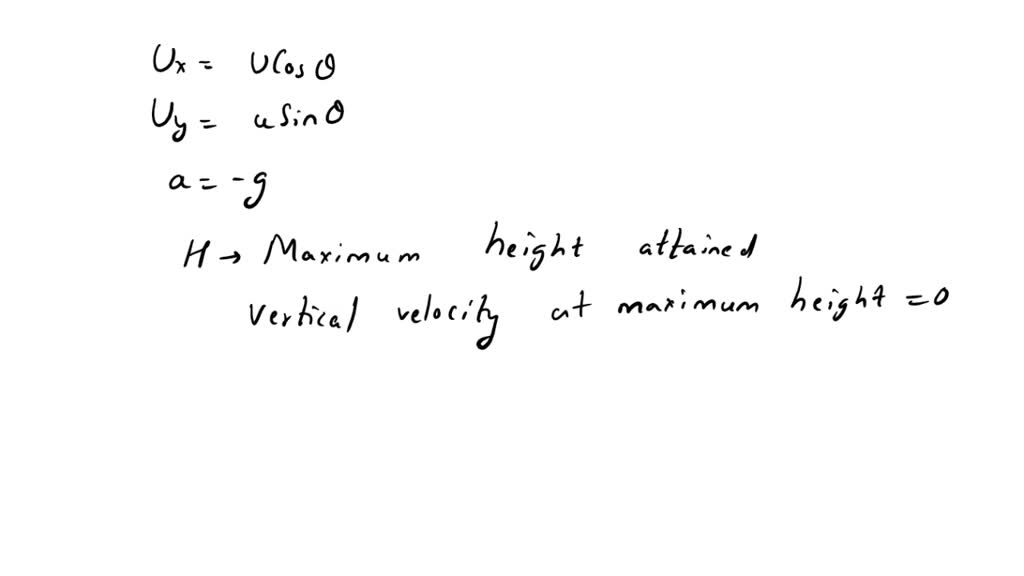 Ux = U Cos θ
Uy = u Sin θ
a = -g
H → Maximum height attained
vertical velocity at maximum height = 0